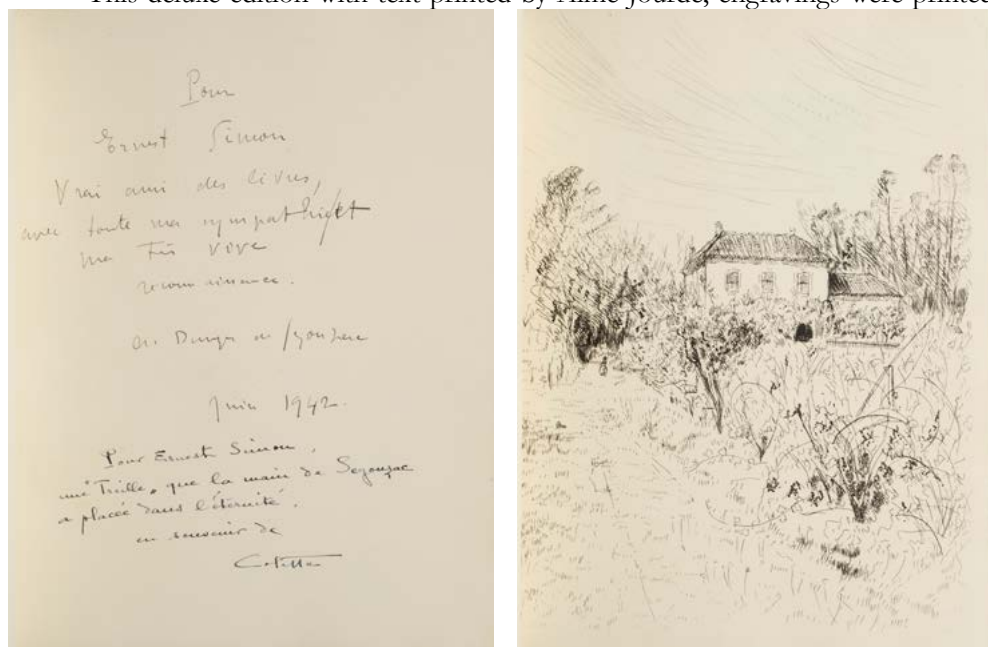 This deluxe edition with text printed by Aimé Jourde, engravings were printed
Pour
Ernest Simon
Vrai ami des livres,
avec toute ma sympathie et
ma très vive
reconnaissance.
A. Dunoyer de Segonzac
Juin 1942.
Pour Ernest Simon,
une Treille, que la main de Segonzac
a placée dans l'éternité.
en souvenir de
Colette